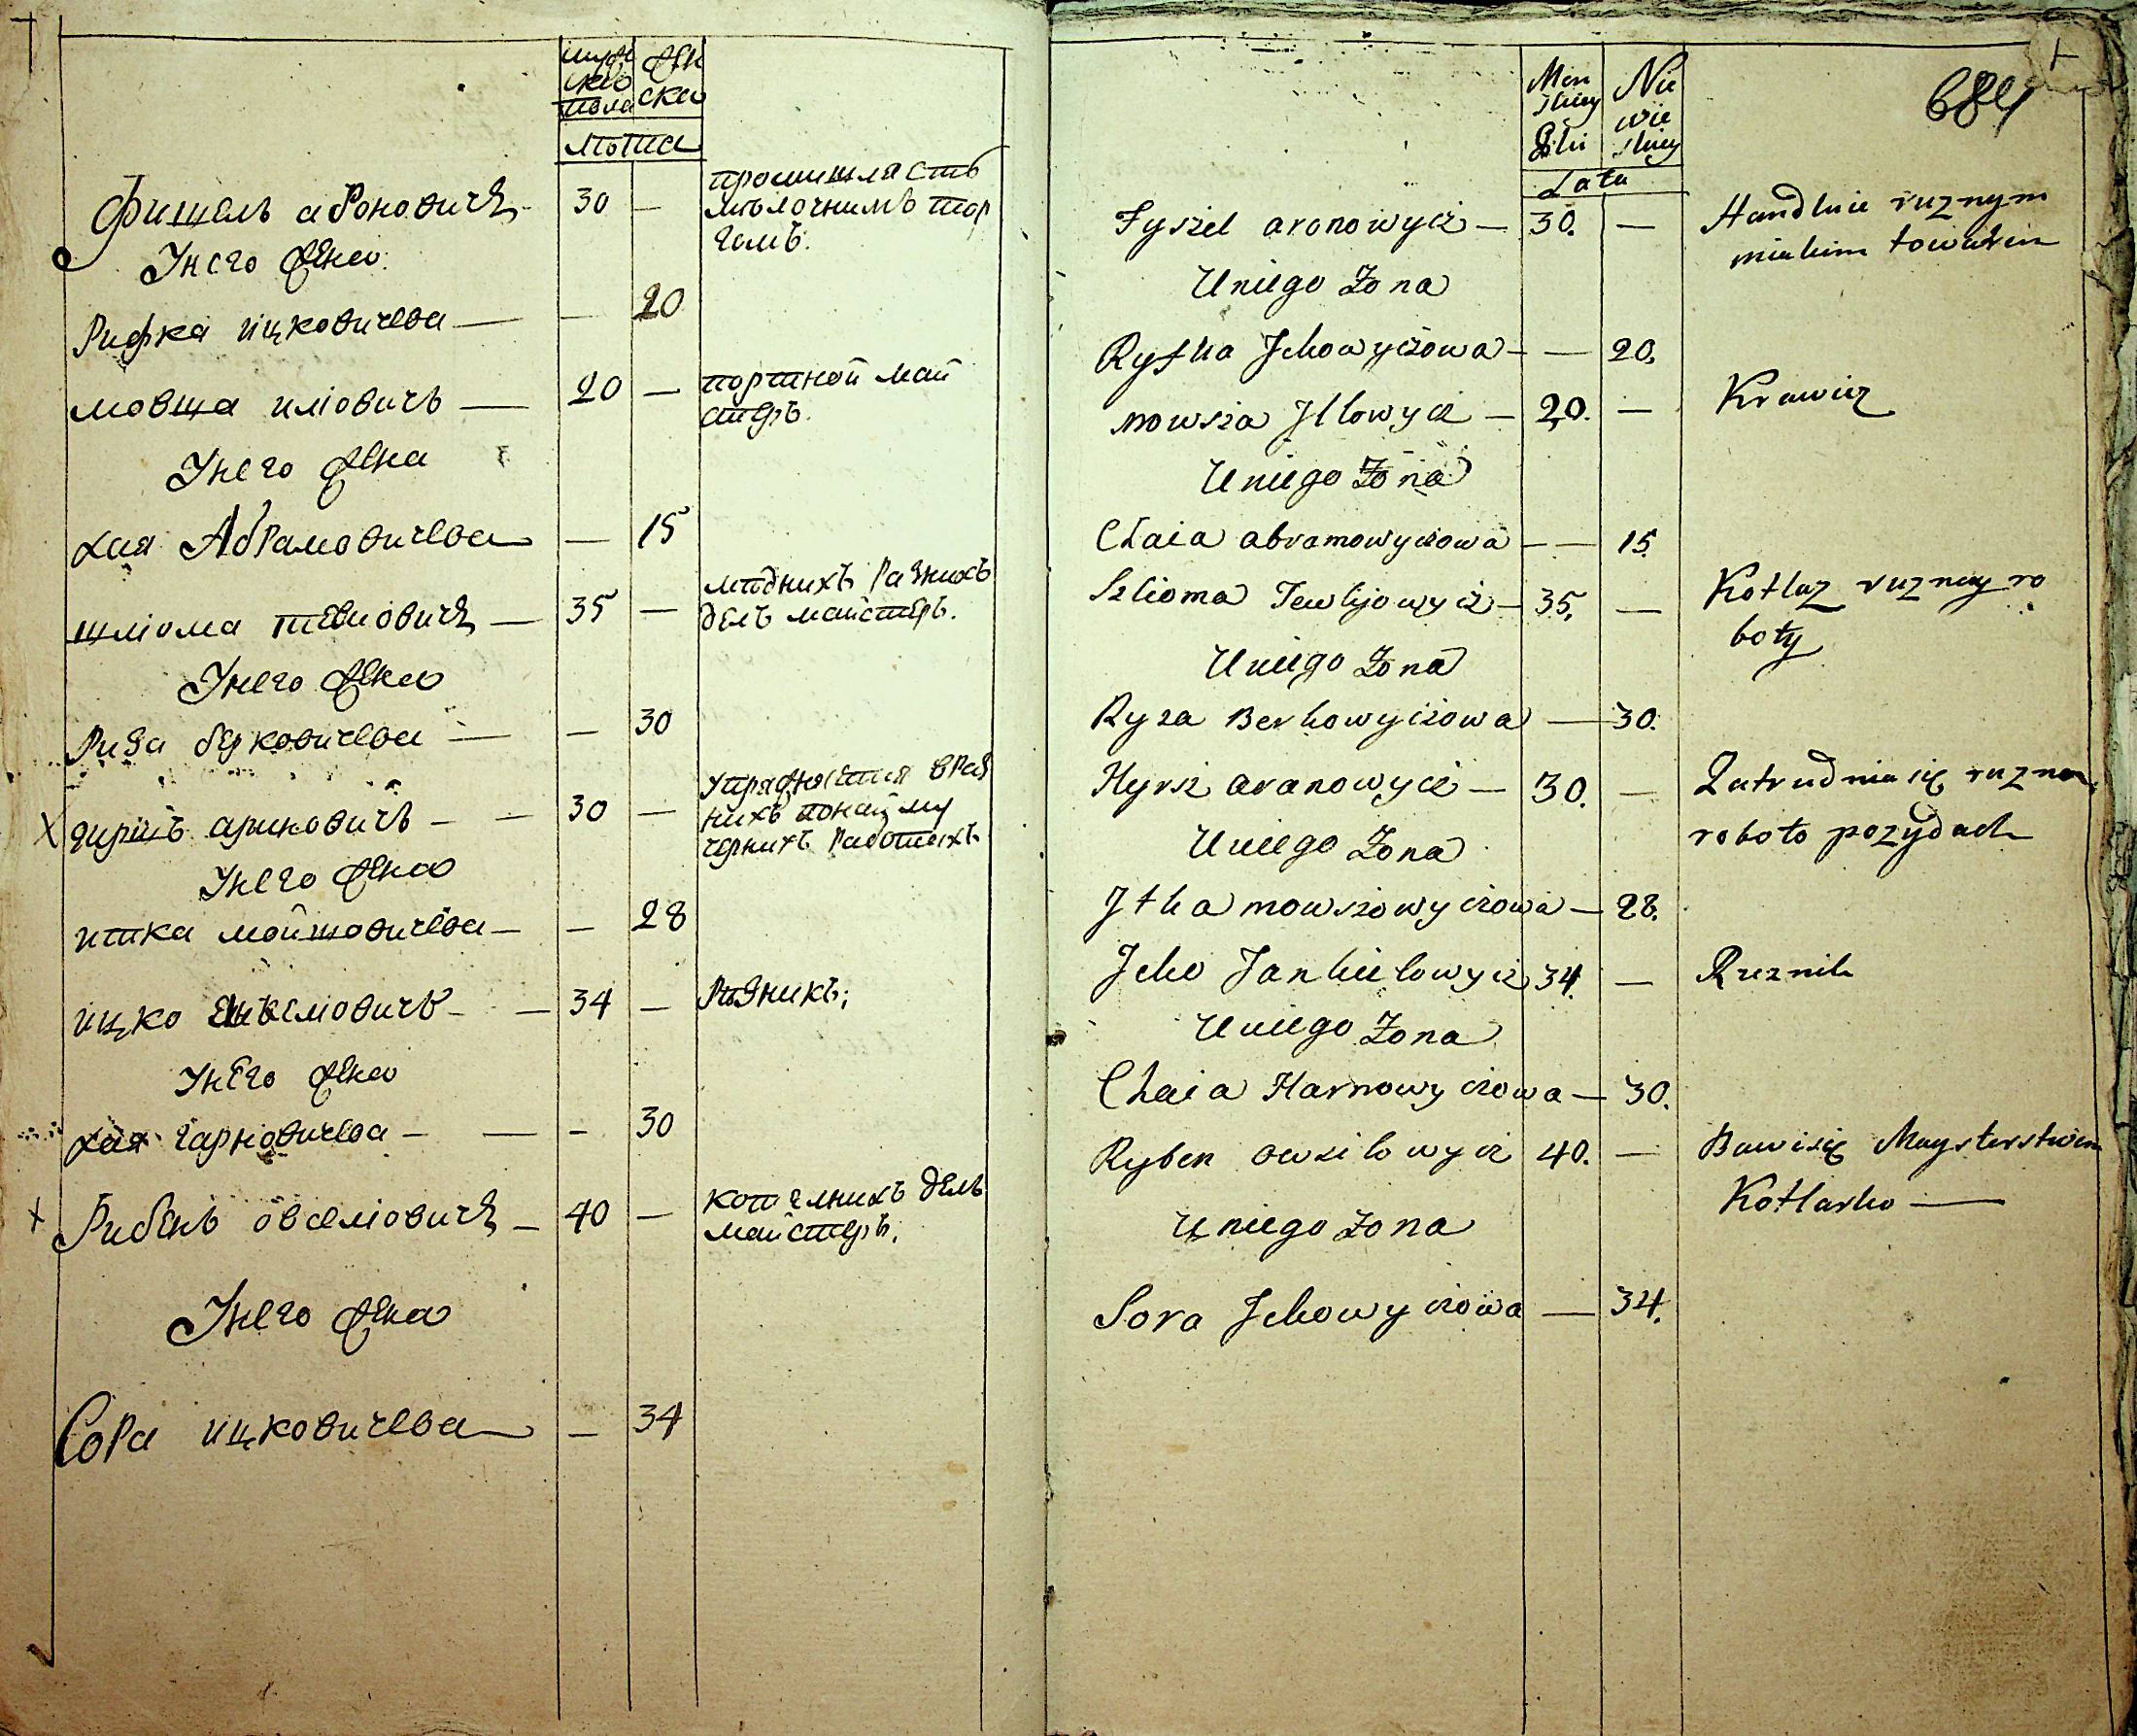 мужска пола
женска
лѣта
Фишель ароновичъ — 30 —
промишляетъ
мѣлочнимъ тор
гомъ.
У него жена
Рифка ицковичева — — 20
мовша иліовичъ — 20 —
портной май
стеръ.
У него жена
хая Абрамовичева — 15
шліома тевіовичъ — 35 —
мѣднихъ разнихъ
делъ майстеръ.
У него жена
Риза берковичева — — 30
гиршъ ароновичъ — — 30 —
упражняется враз
нихъ понайму
чернихъ работахъ.
У него жена
итка мойшовичева — — 28
ицко янкеліовичъ — — 34 —
Рѣзникъ;
У него жена
хая гарновичева — — — 30
Рибень овселіовичъ — 40 —
котелнихъ делъ
майстеръ;
У него жена
Сора ицковичева — 34
684
Men
skiey
Płci
Nie
wie
skiey
Lata
Fyszel aronowycz — 30. —
Handluie ruznym
mialkim towarem
U niego Zona
Ryfka Jckowyczowa — — 20.
mowsza Jllowycz — 20. —
Krawiec
U niego Zona
Chaia abramowyczowa — — 15.
Szlioma Tewlijowycz — 35. —
Kotlaz ruzney ro
boty
U niego Zona
Ryza Berkowyczowa — 30.
Hyrsz aranowycz — 30. —
Zatrudnia się ruzno
roboto pozydach
U niego Zona
Jtka mowszowyczowa — 28.
Jcko Jankielowycz 34. —
Rzeznik
U niego Zona
Chaia Harnowyczowa — 30.
Ryben owsilowycz 40. —
Bawi się Maysterstwem
Kotlarko —
U niego Zona
Sora Jckowyczowa — 34.